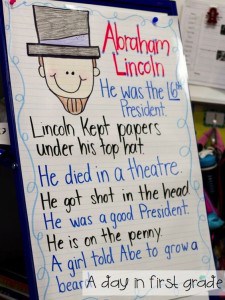 Abraham
Lincoln
He was the 16th
President.
Lincoln kept papers
under his top hat.
He died in a theatre.
He got shot in the head.
He was a good President.
He is on the penny.
A girl told Abe to grow a
bear
A day in first grade